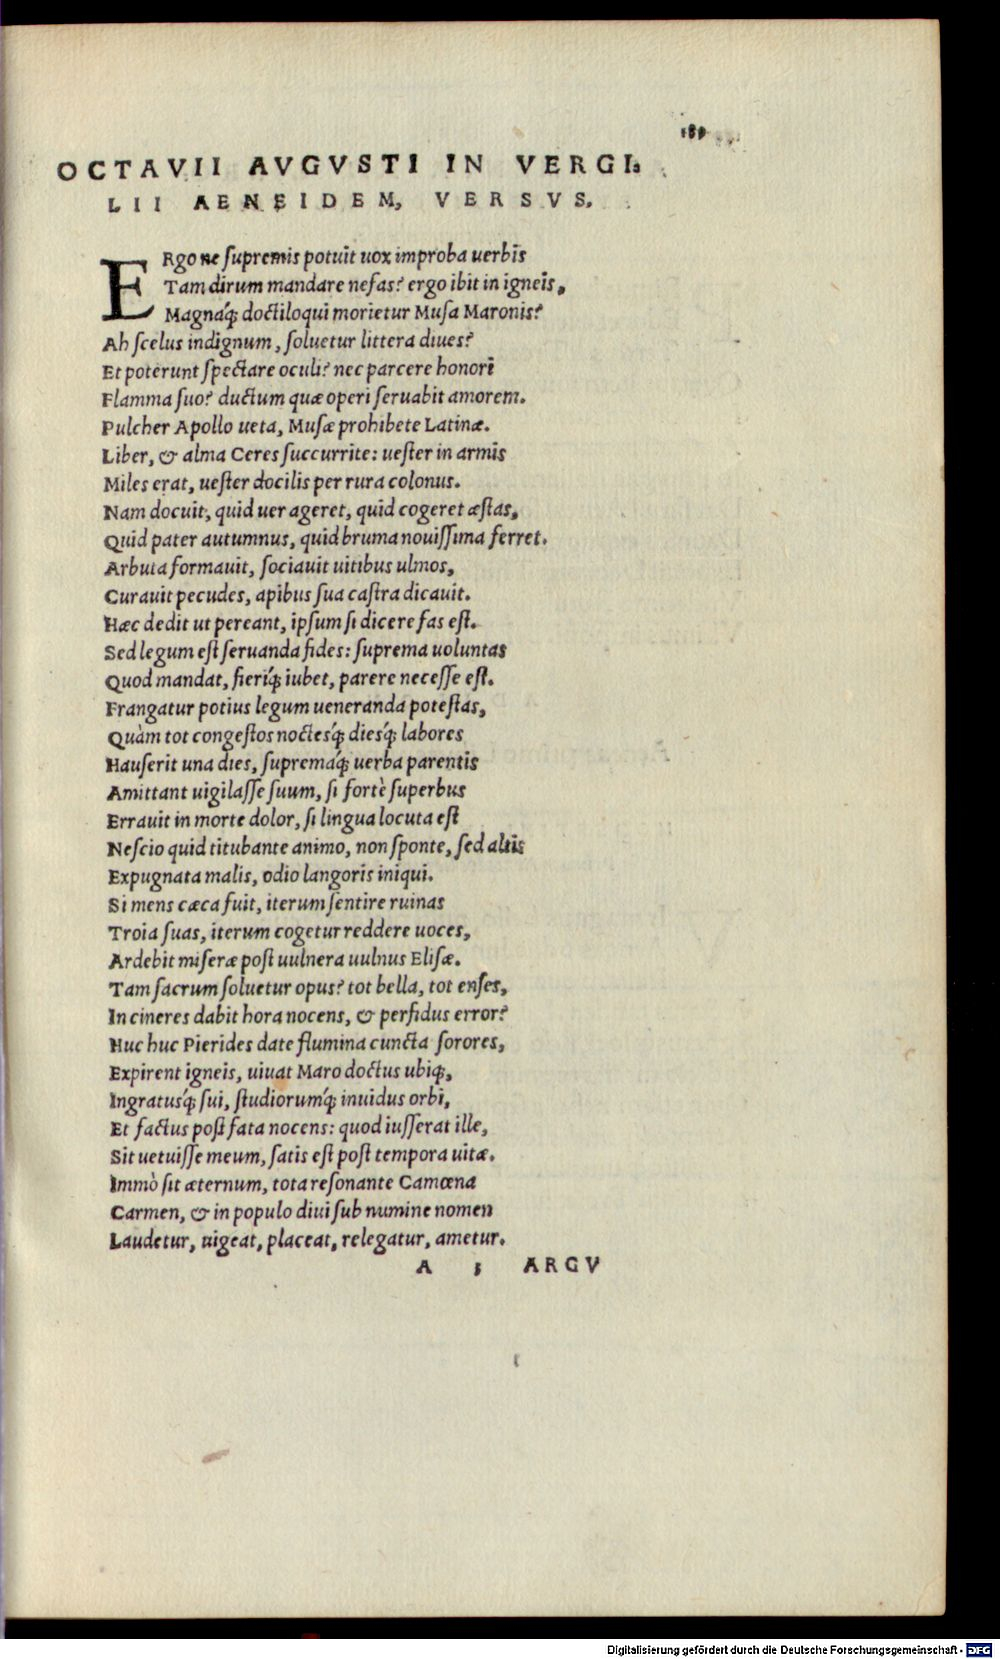 189
OCTAVII AVGVSTI IN VERGI-
LII AENEIDEM, VERSVS.
ERgo ne ſupremis potuit uox improba uerbis
Tam dirum mandare nefas? ergo ibit in igneis,
Magnáq; doctiloqui morietur Muſa Maronis?
Ah ſcelus indignum, ſoluetur littera diues?
Et poterunt ſpectare oculi? nec parcere honori
Flamma ſuo? ductum quæ operi ſeruabit amorem.
Pulcher Apollo ueta, Muſæ prohibete Latinæ.
Liber, & alma Ceres ſuccurrite: ueſter in armis
Miles erat, ueſter docilis per rura colonus.
Nam docuit, quid uer ageret, quid cogeret æſtas,
Quid pater autumnus, quid bruma nouiſſima ferret.
Arbuta formauit, ſociauit uitibus ulmos,
Curauit pecudes, apibus ſua caſtra dicauit.
Hæc dedit ut pereant, ipſum ſi dicere fas eſt.
Sed legum eſt ſeruanda fides: ſuprema uoluntas
Quod mandat, fieríq; iubet, parere neceſſe eſt.
Frangatur potius legum ueneranda poteſtas,
Quàm tot congeſtos noctesq́; diesq́; labores
Hauſerit una dies, ſupremáq; uerba parentis
Amittant uigilaſſe ſuum, ſi fortè ſuperbus
Errauit in morte dolor, ſi lingua locuta eſt
Neſcio quid titubante animo, non ſponte, ſed altis
Expugnata malis, odio langoris iniqui.
Si mens cæca fuit, iterum ſentire ruinas
Troia ſuas, iterum cogetur reddere uoces,
Ardebit miſeræ poſt uulnera uulnus Eliſæ.
Tam ſacrum ſoluetur opus? tot bella, tot enſes,
In cineres dabit hora nocens, & perfidus error?
Huc huc Pierides date flumina cuncta ſorores,
Expirent igneis, uiuat Maro doctus ubiq;,
Ingratusq́; ſui, ſtudiorumq́; inuidus orbi,
Et factus poſt fata nocens: quod iuſſerat ille,
Sit uetuiſſe meum, ſatis eſt poſt tempora uitæ.
Immò ſit æternum, tota reſonante Camœna
Carmen, & in populo diui ſub numine nomen
Laudetur, uigeat, placeat, relegatur, ametur.
A 3 ARGV
Digitalisierung gefördert durch die Deutsche Forschungsgemeinschaft - DFG